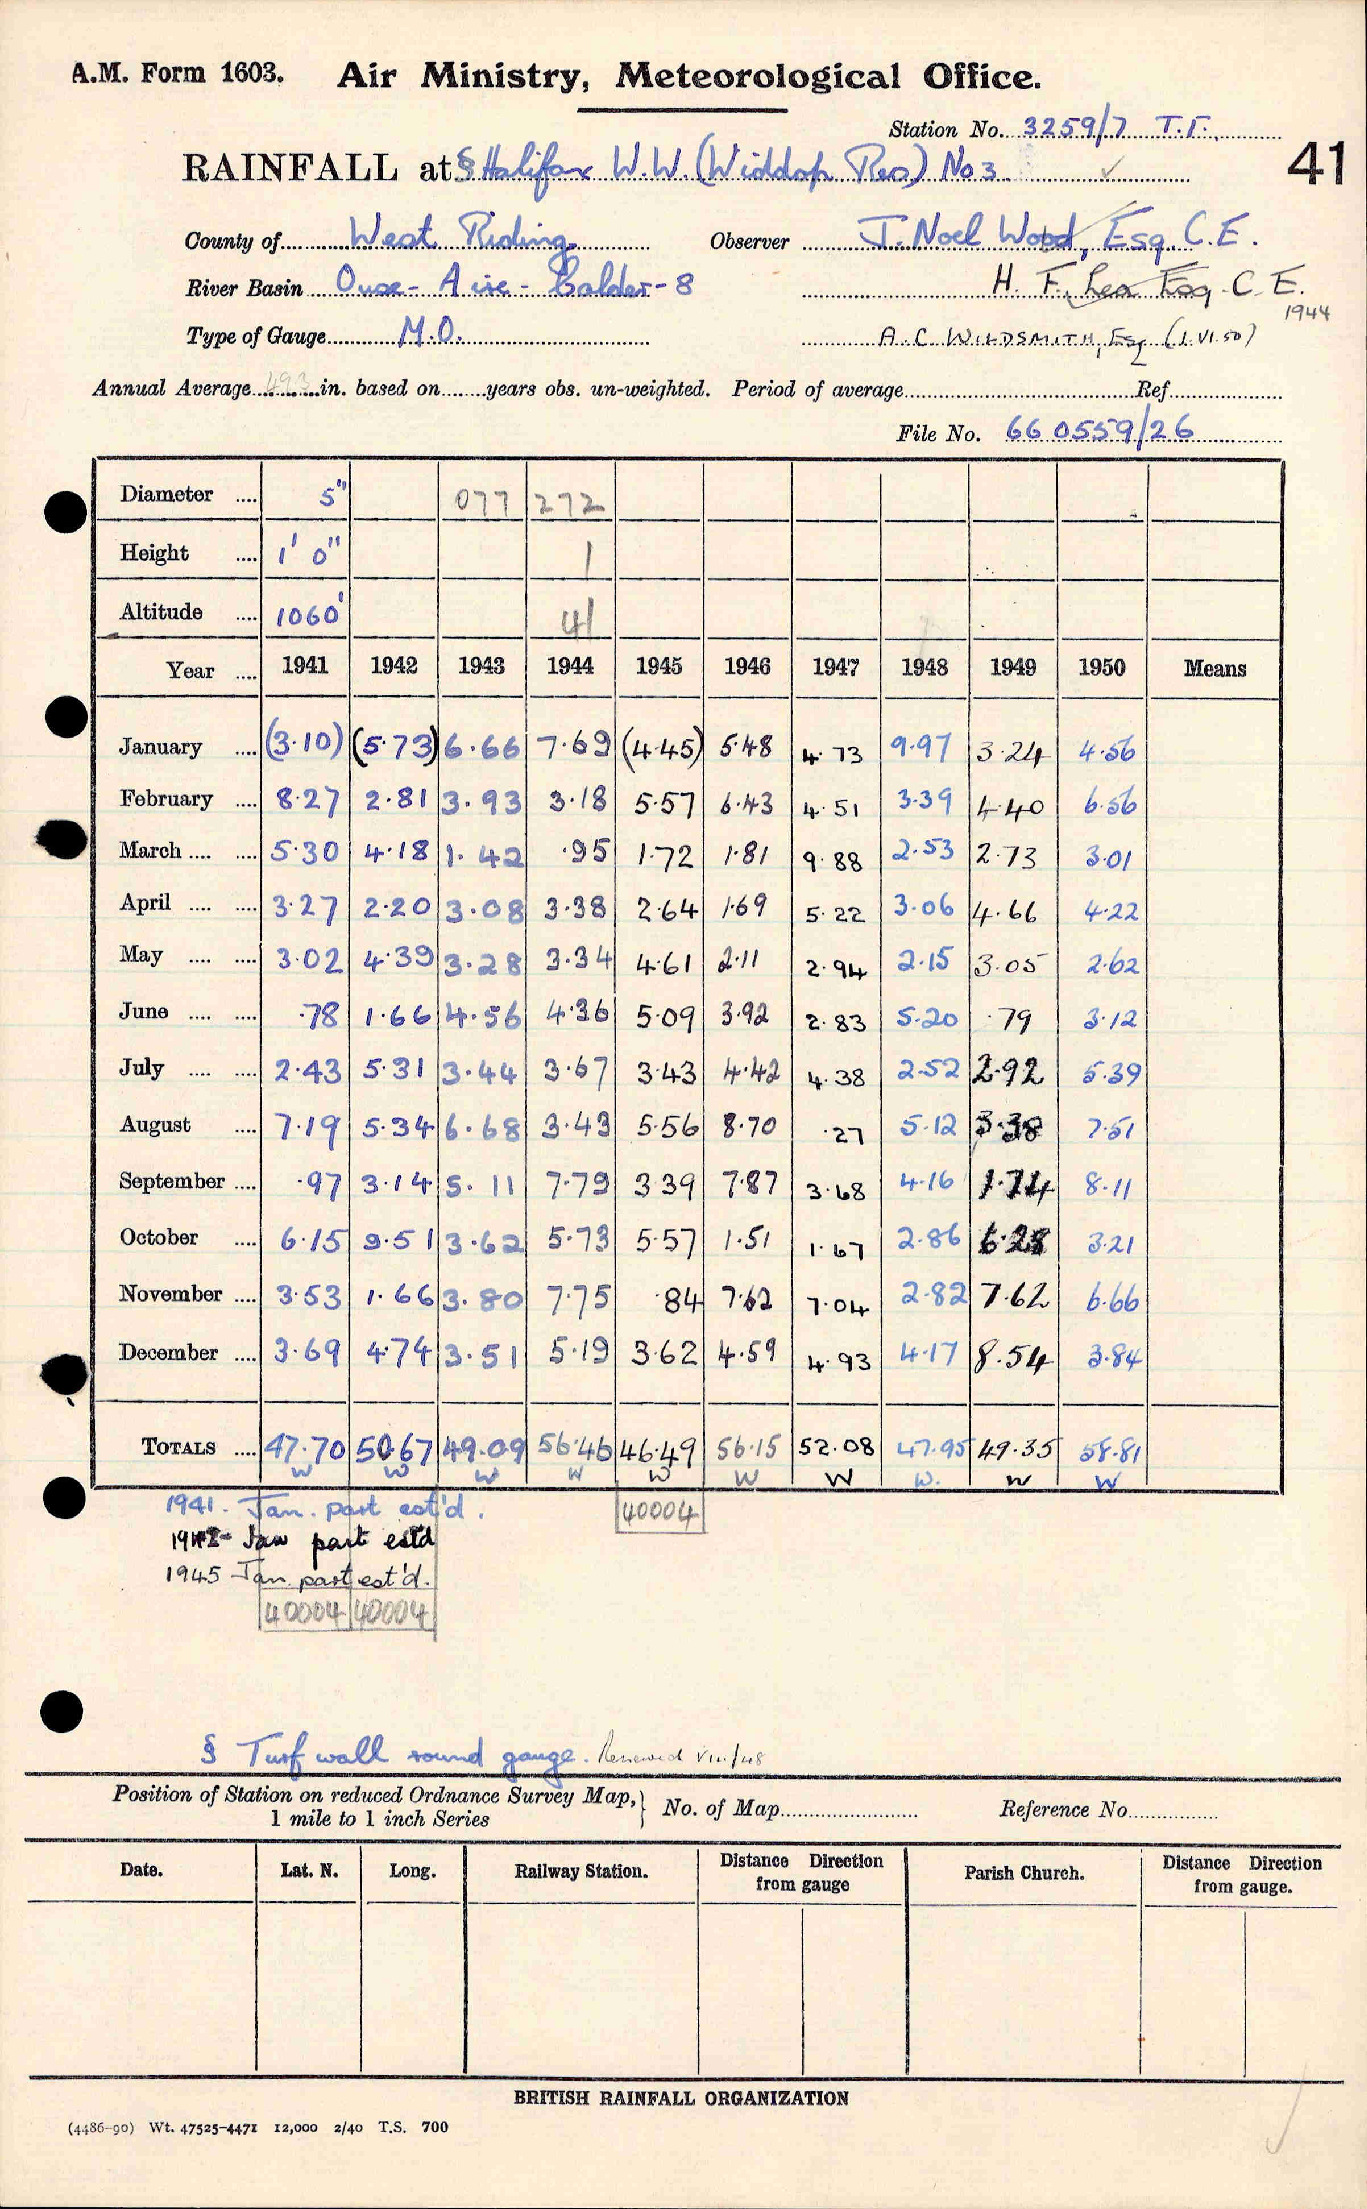 A.M. Form 1603. Air Ministry, Meteorological Office.
Station No. 3259/7 T.T.
41
RAINFALL at § Halifax W.W. (Widdop Res) No 3
County of West Riding Observer J. Noel Wood, Esq. C.E.
River Basin Ouse - Aire - Calder - 8 H. F. Lea Esq. C.E.
1944
Type of Gauge M.O. A. C. WILDSMITH, Esq (1.VI.50)
Annual Average 49.3 in. based on years obs. un-weighted. Period of average Ref
File No. 66 0559/26
Diameter .... 5" 077 272
Height .... 1' 0" 1
Altitude .... 1060' 41
Year .... 1941 1942 1943 1944 1945 1946 1947 1948 1949 1950 Means
January .... (3.10) (5.73) 6.66 7.69 (4.45) 5.48 4.73 9.97 3.24 4.56
February .... 8.27 2.81 3.93 3.18 5.57 6.43 4.51 3.39 4.40 6.56
March .... .... 5.30 4.18 1.42 .95 1.72 1.81 9.88 2.53 2.73 3.01
April .... .... 3.27 2.20 3.08 3.38 2.64 1.69 5.22 3.06 4.66 4.22
May .... .... 3.02 4.39 3.28 3.34 4.61 2.11 2.94 2.15 3.05 2.62
June .... .... .78 1.66 4.56 4.36 5.09 3.92 2.83 5.20 .79 3.12
July .... .... 2.43 5.31 3.44 3.67 3.43 4.42 4.38 2.52 2.92 5.39
August .... 7.19 5.34 6.68 3.43 5.56 8.70 .27 5.12 3.38 7.51
September .... .97 3.14 5.11 7.79 3.39 7.87 3.68 4.16 1.74 8.11
October .... 6.15 9.51 3.62 5.73 5.57 1.51 1.67 2.86 6.28 3.21
November .... 3.53 1.66 3.80 7.75 .84 7.62 7.04 2.82 7.62 6.66
December .... 3.69 4.74 3.51 5.19 3.62 4.59 4.93 4.17 8.54 3.84
TOTALS .... 47.70 50.67 49.09 56.46 46.49 56.15 52.08 47.95 49.35 58.81
W W W W W W W W. W W
1941. Jan. part est'd. 40004
1942 - Jan part estd
1945 Jan. part est'd.
40004 40004
§ Turf wall round gauge. Renewed VIII/48
Position of Station on reduced Ordnance Survey Map, } No. of Map Reference No.
1 mile to 1 inch Series
Date. Lat. N. Long. Railway Station. Distance Direction from gauge Parish Church. Distance Direction from gauge.
BRITISH RAINFALL ORGANIZATION
(4486-90) Wt. 47525-4471 12,000 2/40 T.S. 700